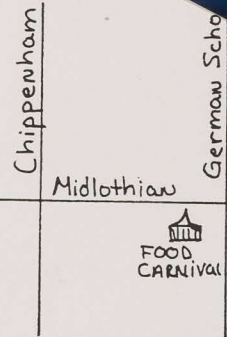 Chippenham
German Scho
Midlothian
FOOD
CARNIVAL